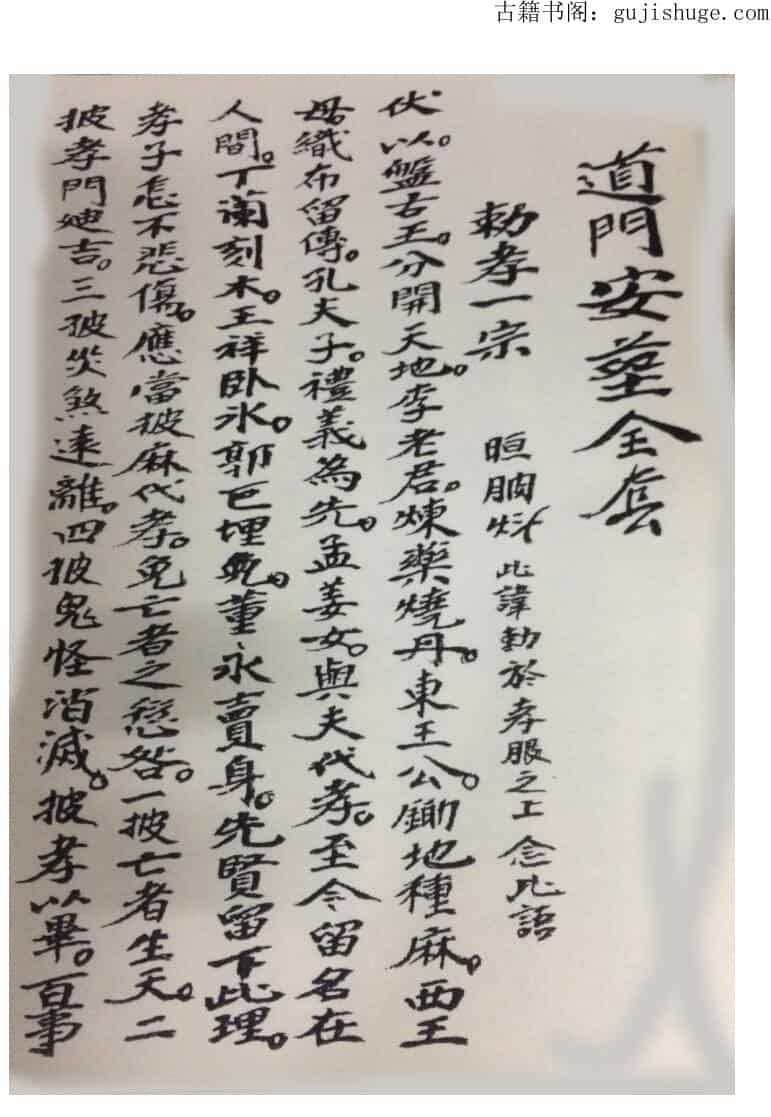 古籍书阁：gujishuge.com
道門安塟全套
勅孝一宗 此諱勅於孝服之上念此語
伏以。盤古王。分開天地。李老君。煉藥燒丹。東王公。鋤地種麻。西王
母。織布留傳。孔夫子。禮義為先。孟姜女。與夫代孝。至今留名在
人間。丁蘭刻木。王祥臥冰。郭巨埋兒。董永賣身。先賢留下此理。
孝子怎不悲傷。應當披麻代孝。免亡者之愆咎。一披亡者生天。二
披孝門迪吉。三披災煞遠離。四披鬼怪消滅。披孝以畢。百事